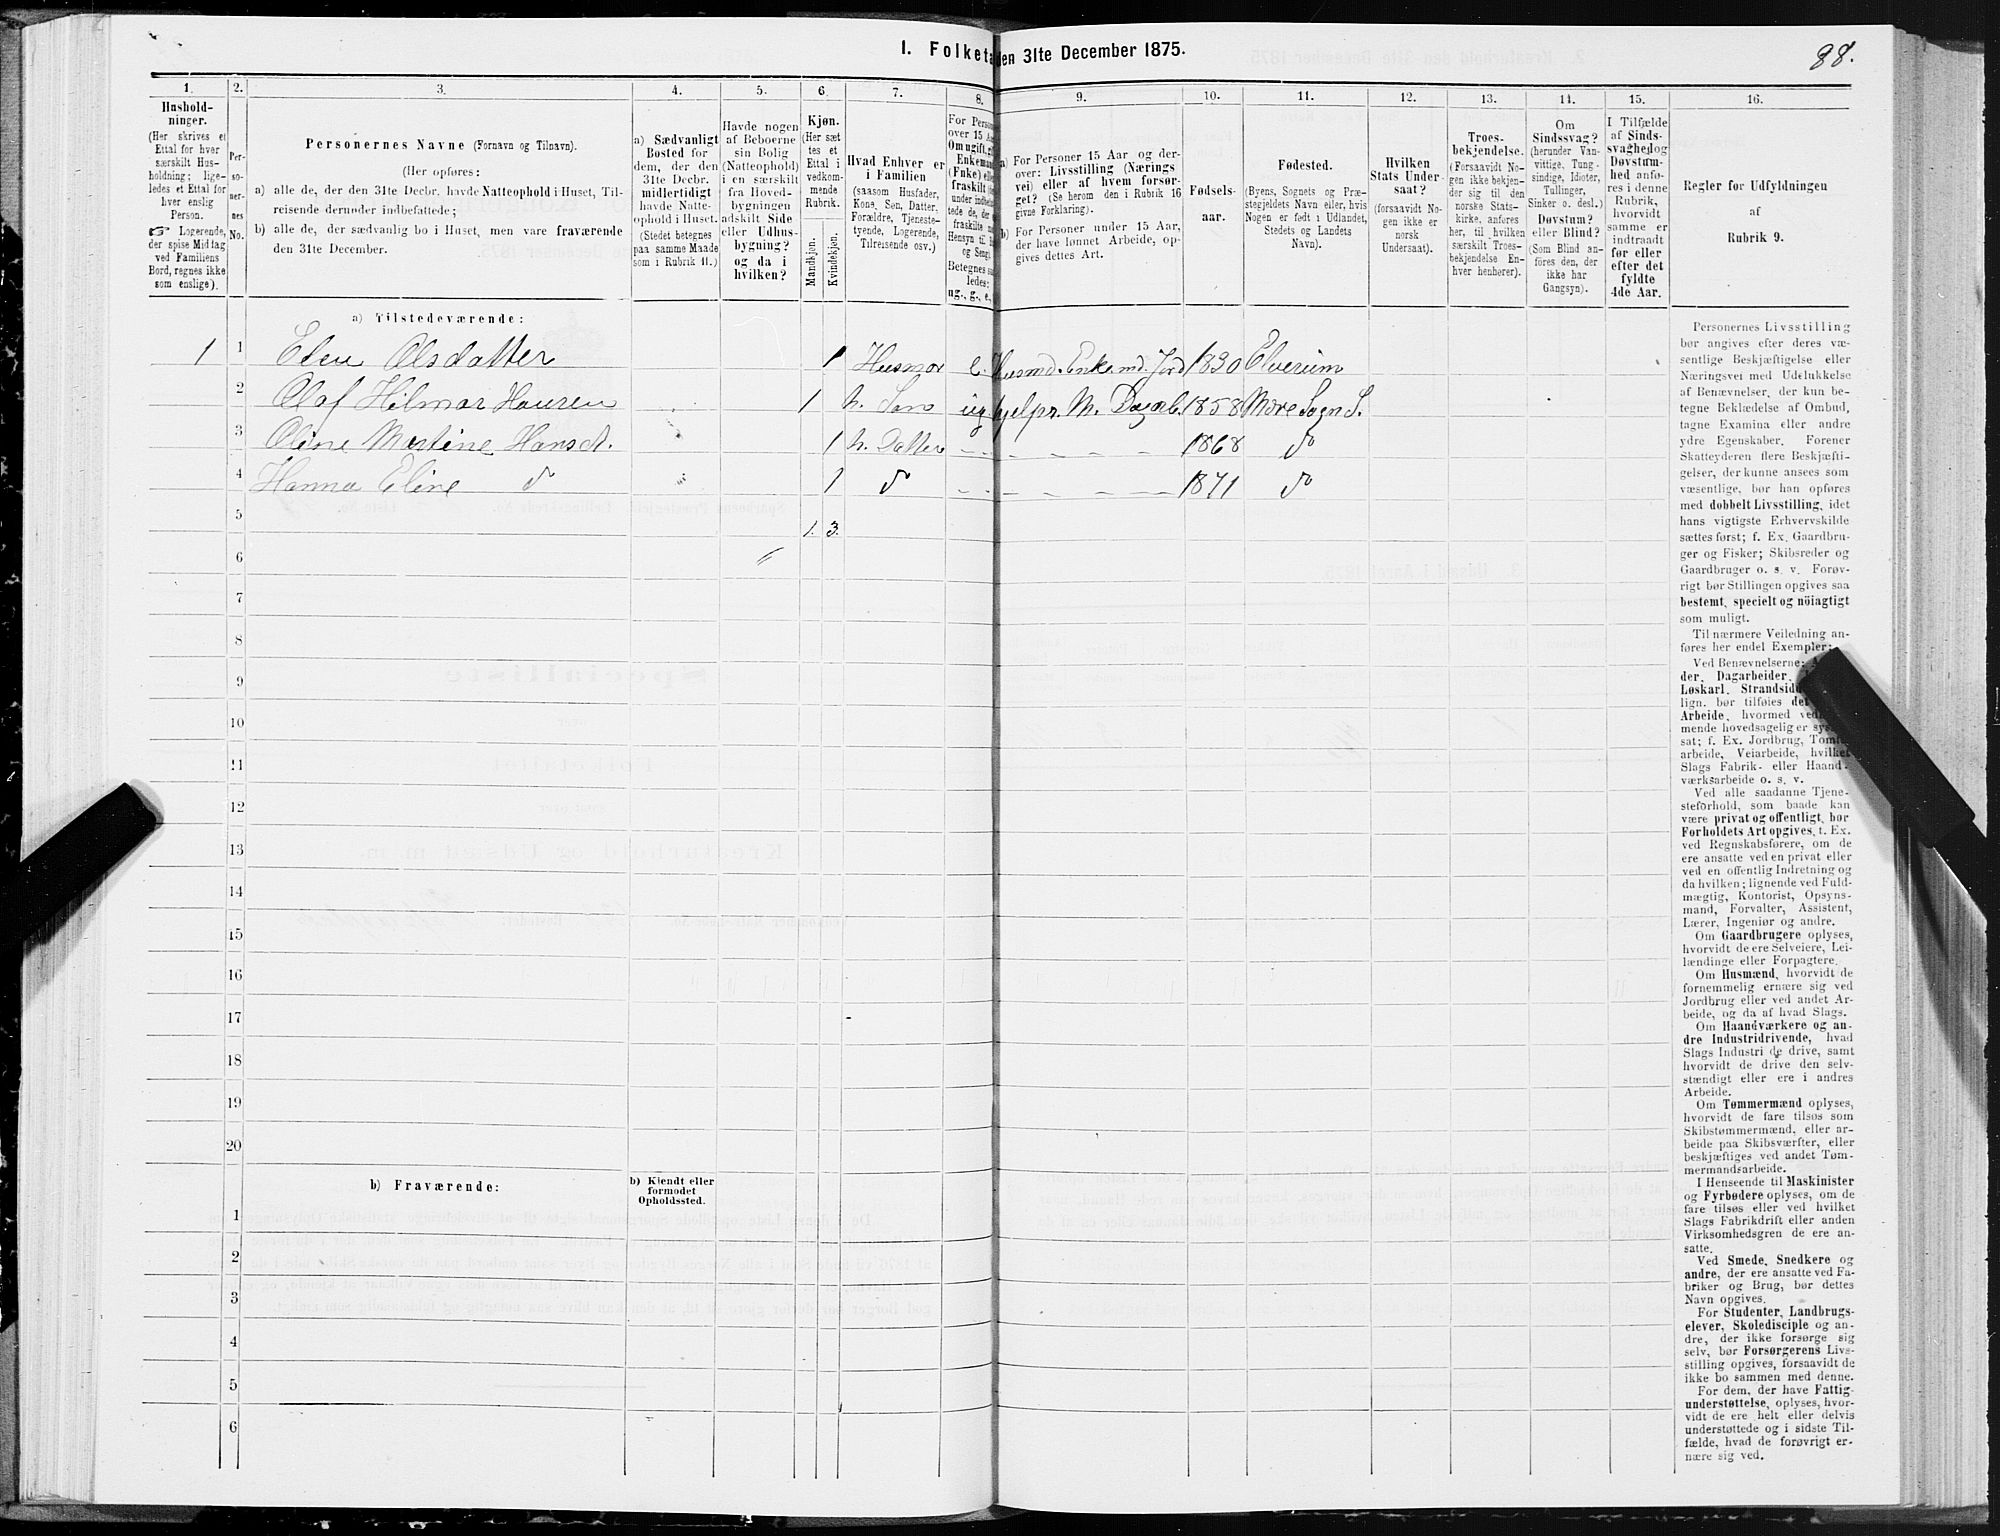 I. Folketa den 31te December 1875.
88.
1. 2. 3. 4. 5. 6. 7. 8. 9. 10. 11. 12. 13. 14. 15. 16.
Hushold-
ninger.
(Her skrives et
Ettal for hver
særskilt Hus-
holdning; lige-
ledes et Ettal for
hver enslig
Person.
☞ Logerende,
der spise Middag
ved Familiens
Bord, regnes ikke
som enslige).
Per-
so-
ner-
nes
No.
Personernes Navne (Fornavn og Tilnavn).
(Her opføres:
a) alle de, der den 31te Decbr. havde Natteophold i Huset, Til-
reisende derunder indbefattede;
b) alle de, der sædvanlig bo i Huset, men vare fraværende
den 31te December.
a) Sædvanligt
Bosted for
dem, der den
31te Decbr.
midlertidigt
havde Natte-
ophold i Huset.
(Stedet betegnes
paa samme Maade
som i Rubrik 11.)
Havde nogen
af Beboerne
sin Bolig
(Natteophold)
i en særskilt
fra Hoved-
bygningen
adskilt Side
eller Udhus-
bygning?
og da i
hvilken?
Kjøn.
(Her sæt
tes et
Ettal i
vedkom-
mende
Rubrik.
Mandkjøn.
Kvindekjøn.
Hvad Enhver er
i Familien
(saasom Husfader,
Kone, Søn, Datter,
Forældre, Tjeneste-
tyende, Logerende,
Tilreisende osv.)
For Person
over 15 Aa
Om ugift, gi
Enkemand
(Enke) el
fraskilt
under indbe
tede de, der
fraskilte m
Hensyn til
og Seng).
Betegnes sa
ledes:
ug., g., e.,
a) For Personer 15 Aar og der-
over: Livsstilling (Nærings
vei) eller af hvem forsør-
get? (Se herom den i Rubrik 16
givne Forklaring).
b) For Personer under 15 Aar,
der have lønnet Arbeide, op-
gives dettes Art.
Fødsels-
aar.
Fødested.
(Byens, Sognets og Præ-
stegjeldets Navn eller, hvis
Nogen er født i Udlandet,
Stedets og Landets
Navn).
Hvilken
Stats Under-
saat?
(forsaavidt No-
gen ikke er
norsk
Undersaat).
Troes-
bekjendelse.
(Forsaavidt No-
gen ikke bekjen-
der sig til den
norske Stats-
kirke, anføres
her, til hvilken
særskilt Troes-
bekjendelse En-
hver henhører).
Om
Sindssvag?
(herunder Van-
vittige, Tung-
sindige, Idioter,
Tullinger,
Sinker o. desl.)
Døvstum?
eller Blind?
(Som Blind an-
føres den, der
ikke har
Gangsyn).
I Tilfælde
af Sinds-
svaghed og
Døvstum-
hed anfø-
res i denne
Rubrik,
hvorvidt
samme er
indtraadt
før eller
efter det
fyldte
4de Aar.
Regler for Udfyldningen
af
Rubrik 9.
a) Tilstedeværende:
1 1 Elen Olsdatter 1 Husmor e. Husmd. Enke md. Jord 1830 Elverum
2 Olaf Hilmar Hansen 1 h. Søn ug hjelpr. M. Dagarb. 1858 Mære Sogn S.
3 Oline Martine Hansd. 1 h. Datter 1868 do
4 Hanna Eline do 1 do 1871 do
5 1. 3.
6
7
8
9
10
11
12
13
14
15
16
17
18
19
20
b) Fraværende:
b) Kjendt eller
formodet
Opholdssted.
1
2
3
4
5
6
Personernes Livsstilling
bør angives efter deres væ-
sentlige Beskjæftigelse eller
Næringsvei med Udelukkelse
af Benævnelser, der kun be-
tegne Beklædelse af Ombud,
tagne Examina eller andre
ydre Egenskaber. Forener
Skatteyderen flere Beskjæfti-
gelser, der kunne ansees som
væsentlige, bør han opføres
med dobbelt Livsstilling, idet
hans vigtigste Erhvervskilde
sættes først; f. Ex. Gaardbru-
ger og Fisker; Skibsreder og
Gaardbruger o. s. v. Forøv-
rigt bør Stillingen opgives saa
bestemt, specielt og nöiagtigt
som muligt.
Til nærmere Veiledning an-
føres her endel Exempler:
Ved Benævnelserne:
der, Dagarbeider,
Løskarl, Strandsid
lign. bør tilføies de
Arbeide, hvormed ved
mende hovedsagelig er sys
sat; f. Ex. Jordbrug, Tomt
arbeide, Veiarbeide, hvilket
Slags Fabrik- eller Haand-
værksarbeide o. s. v.
Ved alle saadanne Tjene-
steforhold, som baade kan
være privat og offentligt, bør
Forholdets Art opgives, t. Ex.
ved Regnskabsførere, om de
ere ansatte ved en privat eller
ved en offentlig Indretning og
da hvilken; lignende ved Fuld-
mægtig, Kontorist, Opsyns-
mand, Forvalter, Assistent,
Lærer, Ingeniør og andre.
Om Gaardbrugere oplyses,
hvorvidt de ere Selveiere, Lei-
lændinge eller Forpagtere.
Om Husmænd, hvorvidt de
fornemmelig ernære sig ved
Jordbrug eller ved andet Ar-
beide, og da af hvad Slags.
Om Haandværkere og an-
dre Industridrivende, hvad
Slags Industri de drive, samt
hvorvidt de drive den selv-
stændigt eller ere i andres
Arbeide.
Om Tømmermænd oplyses,
hvorvidt de fare tilsøs som
Skibstømmermænd, eller ar-
beide paa Skibsværfter, eller
beskjæftiges ved andet Tøm-
mermandsarbeide.
I Henseende til Maskinister
og Fyrbødere oplyses, om de
fare tilsøs eller ved hvilket
Slags Fabrikdrift eller anden
Virksomhedsgren de ere an-
satte.
Ved Smede, Snedkere og
andre, der ere ansatte ved Fa-
briker og Brug, bør dettes
Navn opgives.
For Studenter, Landbrugs-
elever, Skoledisciple og an-
dre, der ikke forsørge sig
selv, bør Forsørgerens Livs-
stilling opgives, forsaavidt de
ikke bo sammen med denne.
For dem, der have Fattig-
understøttelse, oplyses, hvor-
vidt de ere helt eller delvis
understøttede og i sidste Til-
fælde, hvad de forøvrigt er-
nære sig ved.